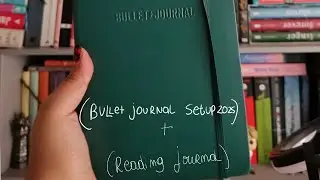 BULLET JOURNAL
(BULLET JOURNAL SETUP 2025)
+
(Reading journal)